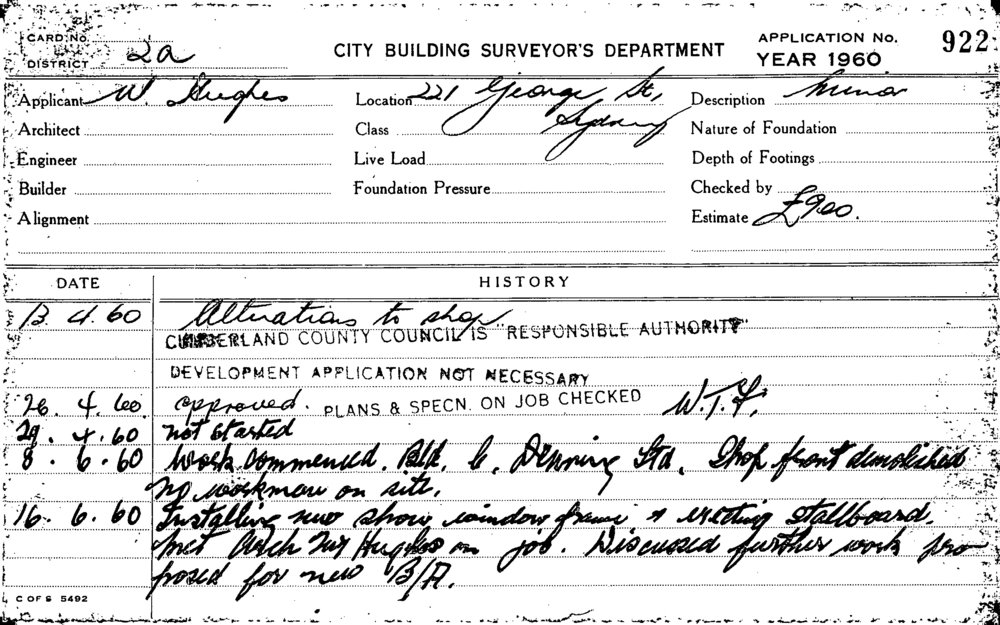 CARD No.
DISTRICT 2a
CITY BUILDING SURVEYOR'S DEPARTMENT
APPLICATION No. 922
YEAR 1960
Applicant W. Hughes
Location 221 George St,
Sydney
Description Minor
Architect
Class
Nature of Foundation
Engineer
Live Load
Depth of Footings
Builder
Foundation Pressure
Checked by
Alignment
Estimate £900.
DATE HISTORY
13. 4. 60 Alterations to shop
CUMBERLAND COUNTY COUNCIL IS "RESPONSIBLE AUTHORITY"
DEVELOPMENT APPLICATION NOT NECESSARY
26. 4. 60. approved. PLANS & SPECN. ON JOB CHECKED W.T.F.
29. 4. 60 not started
8. 6. 60 Work Commenced. Bld. C. Denning Ltd. Shop front demolished
no workman on site.
16. 6. 60 Installing new show window frame & erecting stallboard.
Met Arch Hughes on job. Discussed further work pro
posed for new B/A.
C OF S 5492